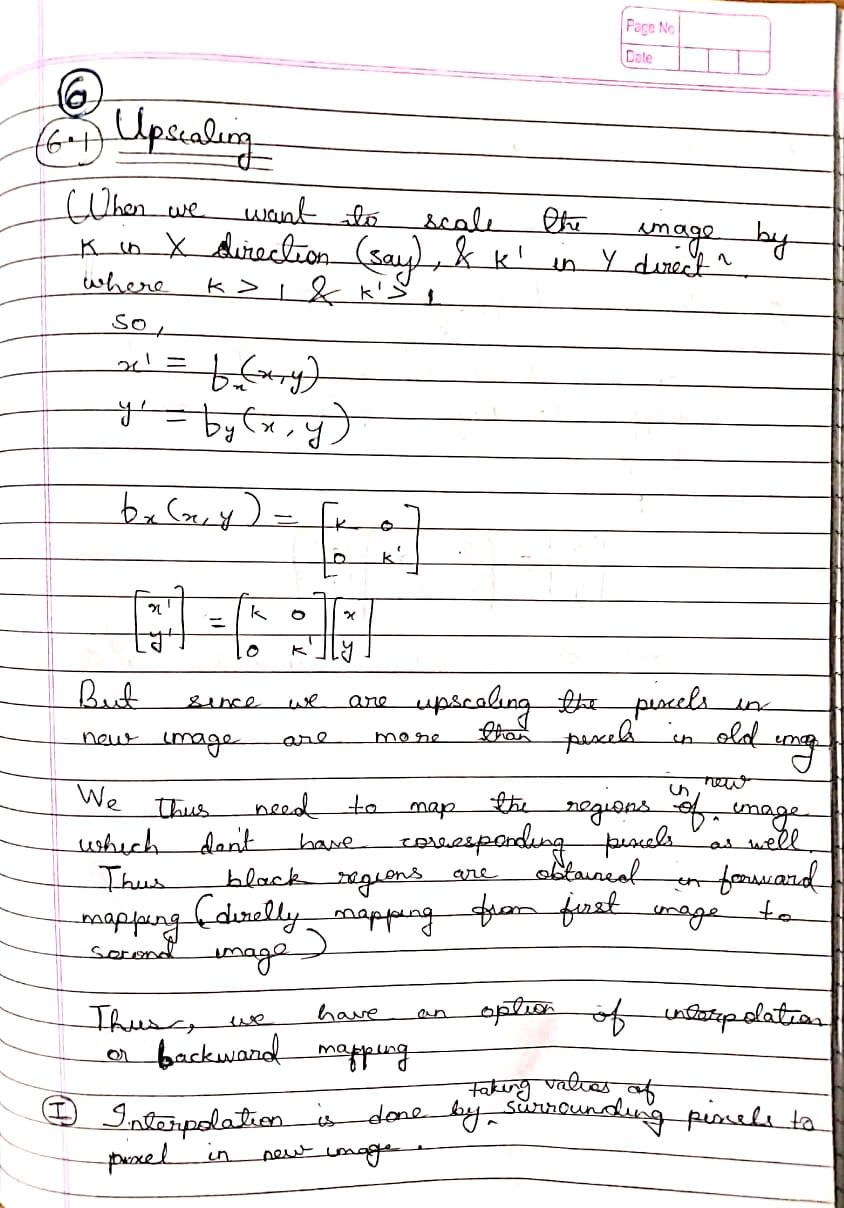 Page No
Date
6
6.1 Upscaling
When we want to scale the image by
K in X direction (say), & K' in Y directn.
where K > 1 & K' > 1
so,
x' = bx(x,y)
y' = by(x,y)
bx(x,y) = [K 0
0 K']
[x' y'] = [K 0
0 K'] [x y]
But since we are upscaling the pixels in
new image are more than pixels in old imag
We thus need to map the regions of in new image
which don't have corresponding pixels as well.
Thus black regions are obtained in forward
mapping (direclly mapping from first image to
second image)
Thus, we have an option of interpolation
or backward mapping
I Interpolation is done by taking values of surrounding pixels to
pixel in new image.